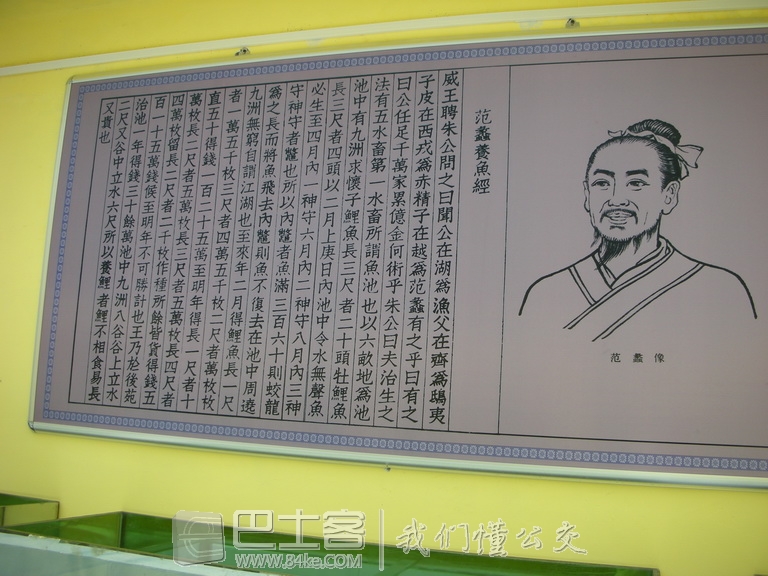 范蠡養魚經
威王聘朱公問之曰聞公在湖爲漁父在齊爲鴟夷
子皮在西戎爲赤精子在越爲范蠡有之乎曰有之
曰公任足千萬家累億金何術乎朱公曰夫治生之
法有五水畜第一水畜所謂魚池也以六畝地爲池
池中有九洲求懷子鯉魚長三尺者二十頭牡鯉魚
長三尺者四頭以二月上庚日內池中令水無聲魚
必生至四月內一神守六月內二神守八月內三神
守神守者鼈也所以內鼈者魚滿三百六十則蛟龍
爲之長而將魚飛去內鼈則魚不復去在池中周遶
九洲無窮自謂江湖也至來年二月得鯉魚長一尺
者一萬五千枚三尺者四萬五千枚二尺者萬枚枚
直五十得錢一百二十五萬至明年得長一尺者十
萬枚長二尺者五萬枚長三尺者五萬枚長四尺者
四萬枚留長二尺者二千枚作種所餘皆貨得錢五
百一十五萬錢候至明年不可勝計也王乃於後苑
治池一年得錢三十餘萬池中九洲八谷谷上立水
二尺又谷中立水六尺所以養鯉者鯉不相食易長
又貴也
范蠡像
巴士客 我们懂公交
www.84ke.com